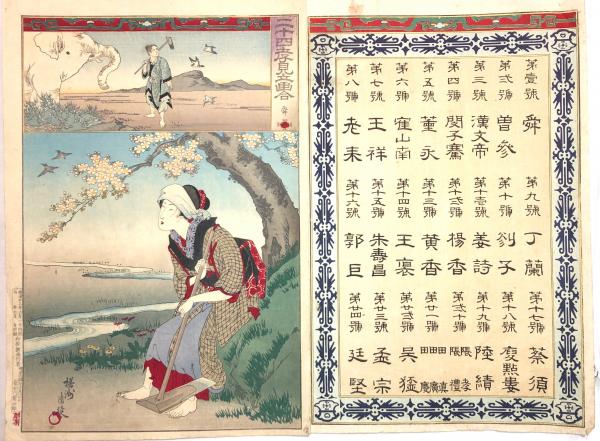 二十四孝見立画合
楊洲周延
第壹號 舜 第九號 丁蘭 第十七號 蔡須
第弐號 曽參 第十號 剡子 第十八號 庾黔婁
第三號 漢文帝 第十壱號 姜詩 第十九號 陸績
第四號 閔子騫 第十弐號 楊香 第弐十號 張孝 張禮
第五號 董永 第十三號 黄香 第廿一號 田真 田廣 田慶
第六號 崔山南 第十四號 王裒 第廿弐號 吴猛
第七號 王祥 第十五號 朱壽昌 第廿三號 孟宗
第八號 老来 第十六號 郭巨 第廿四號 廷堅